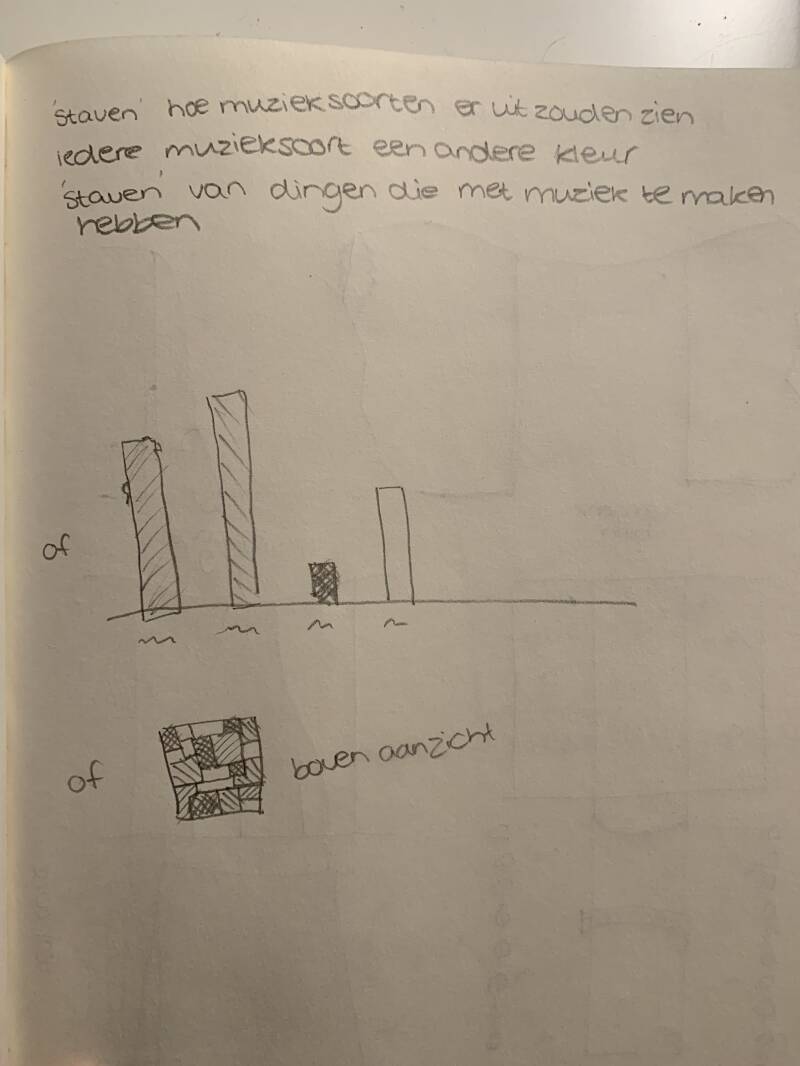 'staven' hoe muzieksoorten er uit zouden zien
iedere muzieksoort een andere kleur
'staven' van dingen die met muziek te maken
hebben
of
of
boven aanzicht